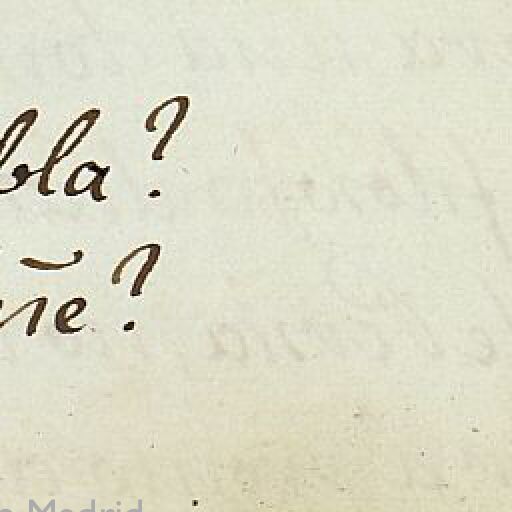 bla?
ñe?
Madrid